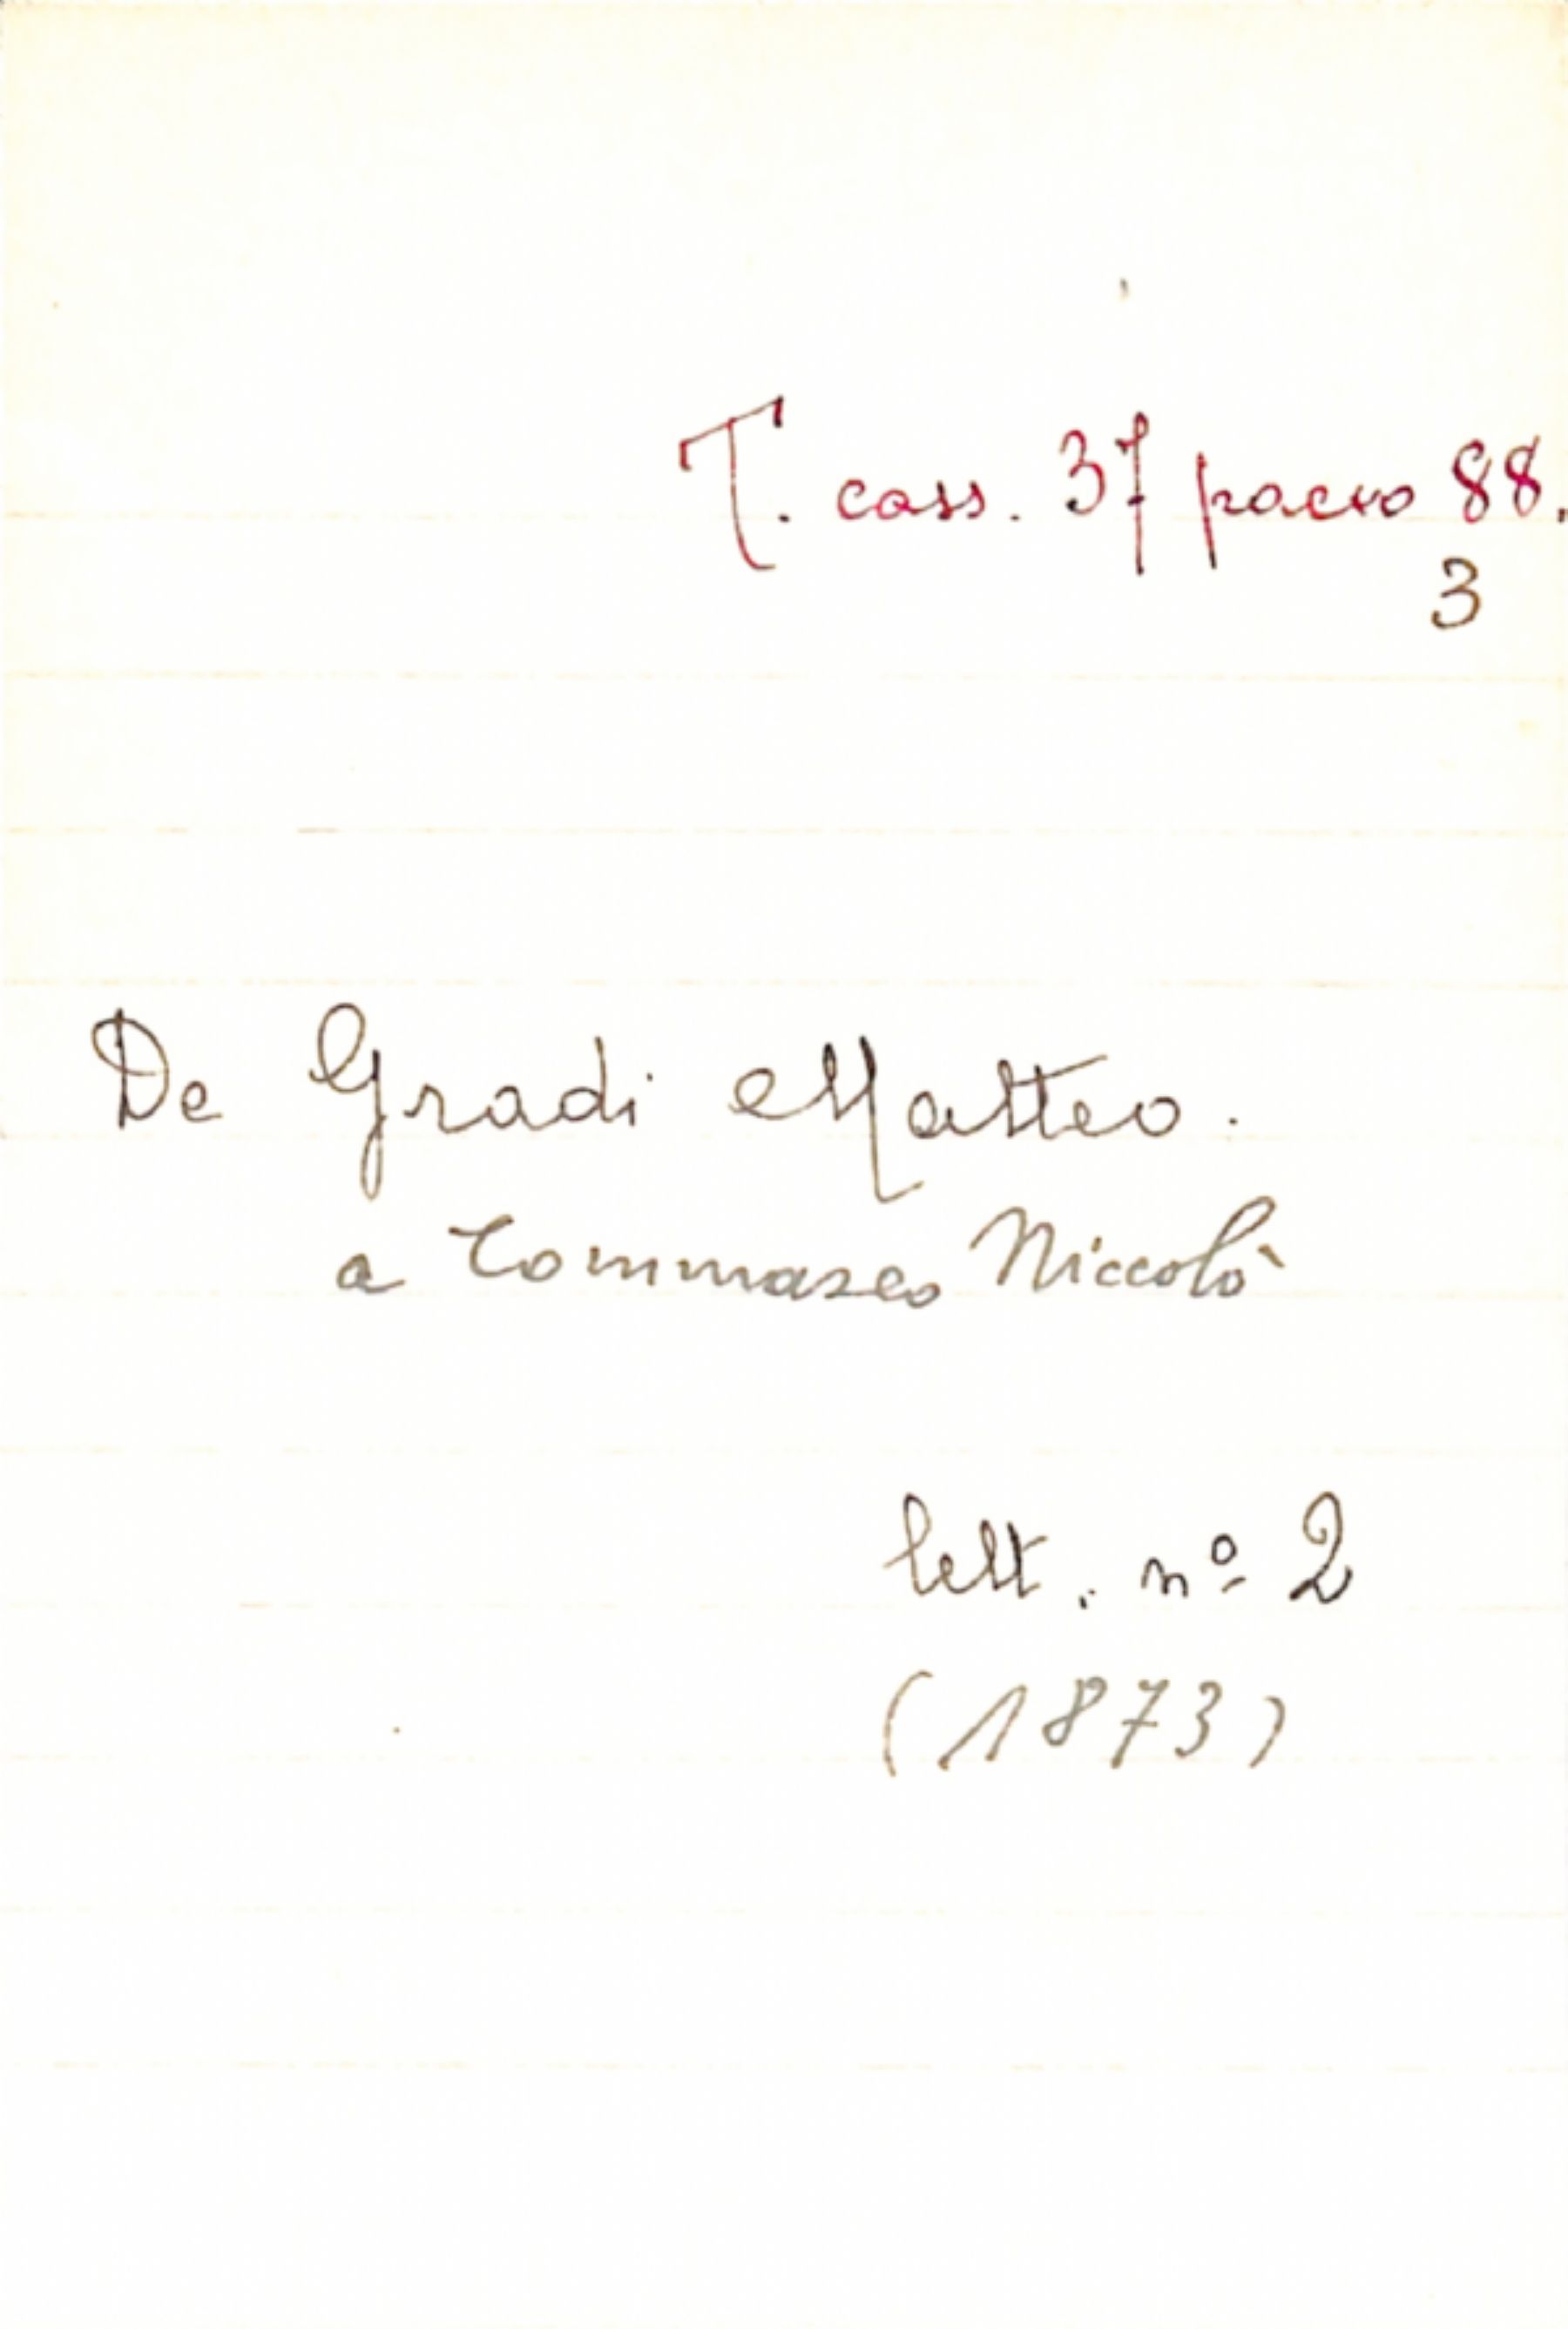 T. cass. 37 pacco 88.
3
De Gradi Matteo.
a Tommaseo Niccolò
lett. nº 2
(1873)